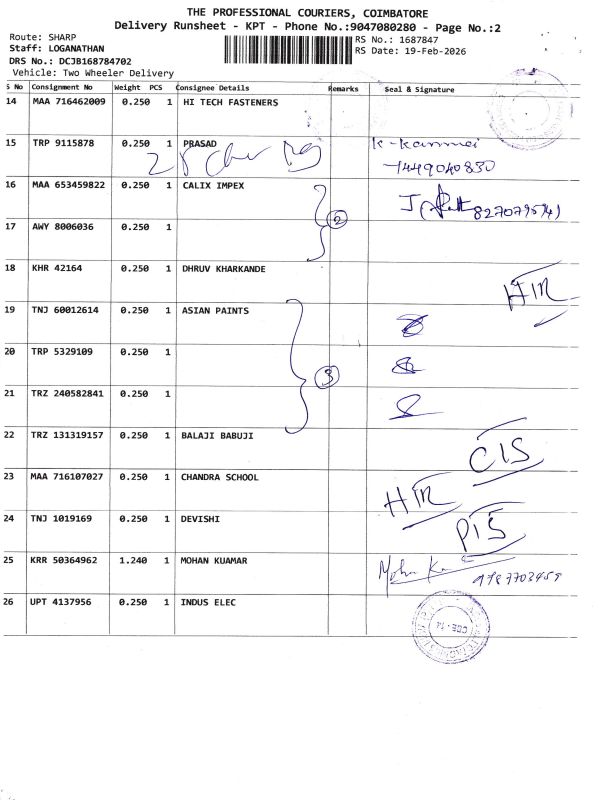 THE PROFESSIONAL COURIERS, COIMBATORE
Delivery Runsheet - KPT - Phone No.:9047080280 - Page No.:2
Route: SHARP
Staff: LOGANATHAN
DRS No.: DCJB168784702
Vehicle: Two Wheeler Delivery
RS No.: 1687847
RS Date: 19-Feb-2026
S No Consignment No Weight PCS Consignee Details Remarks Seal & Signature
14 MAA 716462009 0.250 1 HI TECH FASTENERS
15 TRP 9115878 0.250 1 PRASAD
16 MAA 653459822 0.250 1 CALIX IMPEX
2
17 AWY 8006036 0.250 1
18 KHR 42164 0.250 1 DHRUV KHARKANDE
19 TNJ 60012614 0.250 1 ASIAN PAINTS
20 TRP 5329109 0.250 1
3
21 TRZ 240582841 0.250 1
22 TRZ 131319157 0.250 1 BALAJI BABUJI
CIS
23 MAA 716107027 0.250 1 CHANDRA SCHOOL
24 TNJ 1019169 0.250 1 DEVISHI
25 KRR 50364962 1.240 1 MOHAN KUAMAR
26 UPT 4137956 0.250 1 INDUS ELEC